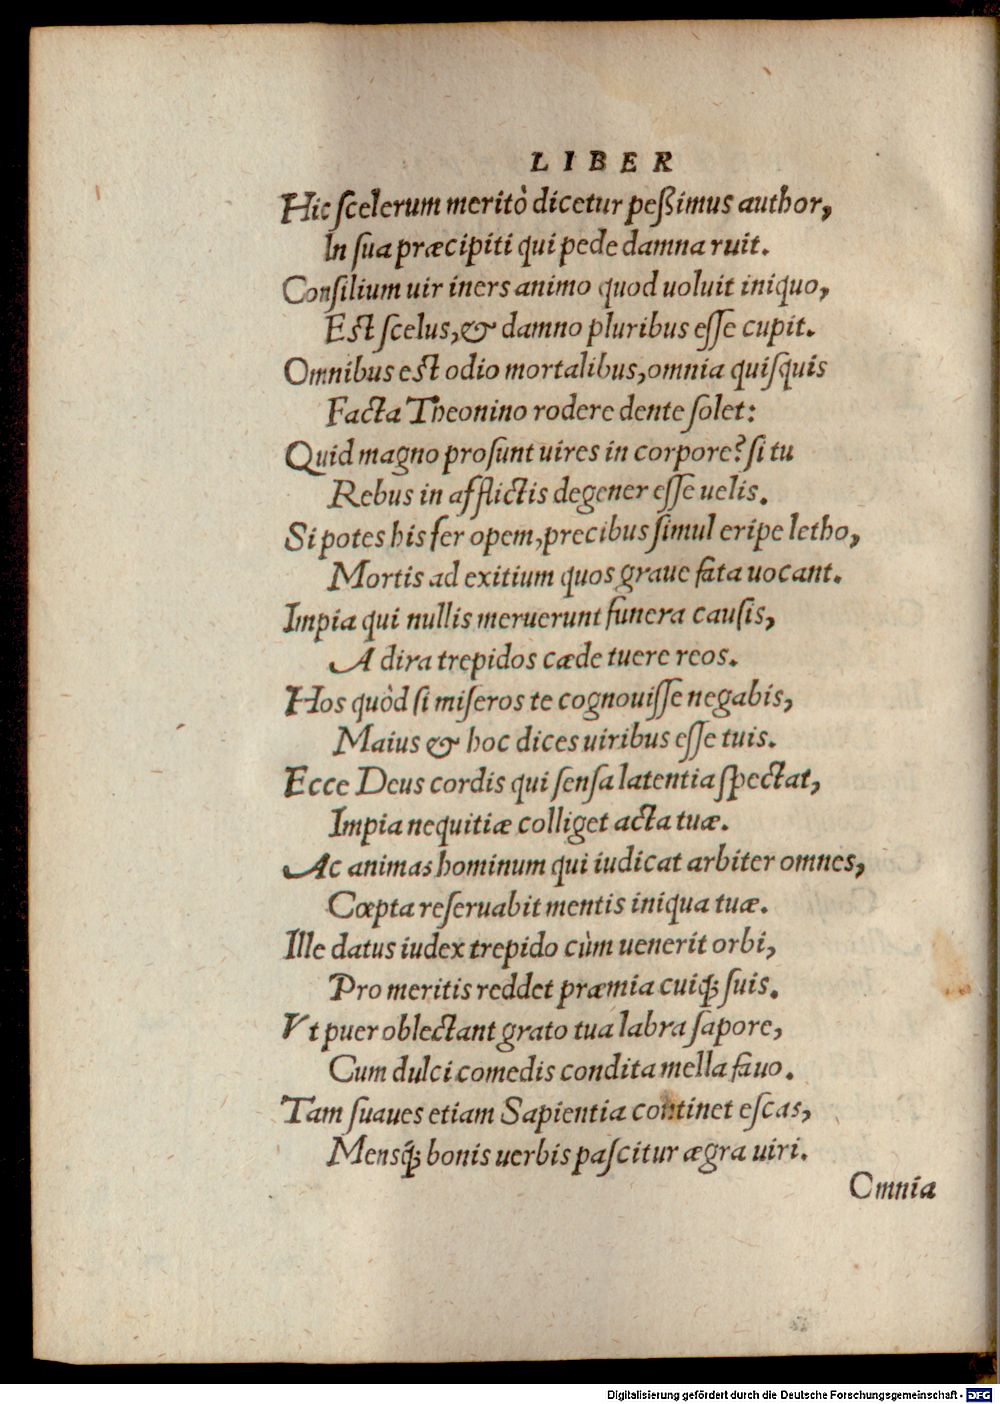 LIBER
Hic scelerum meritò dicetur peßimus author,
In sua præcipiti qui pede damna ruit.
Consilium uir iners animo quod uoluit iniquo,
Est scelus, & damno pluribus esse cupit.
Omnibus est odio mortalibus, omnia quisquis
Facta Theonino rodere dente solet:
Quid magno prosunt uires in corpore? si tu
Rebus in afflictis degener esse uelis.
Si potes his fer opem, precibus simul eripe letho,
Mortis ad exitium quos graue fata uocant.
Impia qui nullis meruerunt funera causis,
A dira trepidos cæde tuere reos.
Hos quòd si miseros te cognouisse negabis,
Maius & hoc dices uiribus esse tuis.
Ecce Deus cordis qui sensa latentia spectat,
Impia nequitiæ colliget acta tuæ.
Ac animas hominum qui iudicat arbiter omnes,
Cœpta reseruabit mentis iniqua tuæ.
Ille datus iudex trepido cùm uenerit orbi,
Pro meritis reddet præmia cuiq́; suis.
Vt puer oblectant grato tua labra sapore,
Cum dulci comedis condita mella fauo.
Tam suaues etiam Sapientia continet escas,
Mensq́; bonis uerbis pascitur ægra uiri.
Omnia
Digitalisierung gefördert durch die Deutsche Forschungsgemeinschaft - DFG